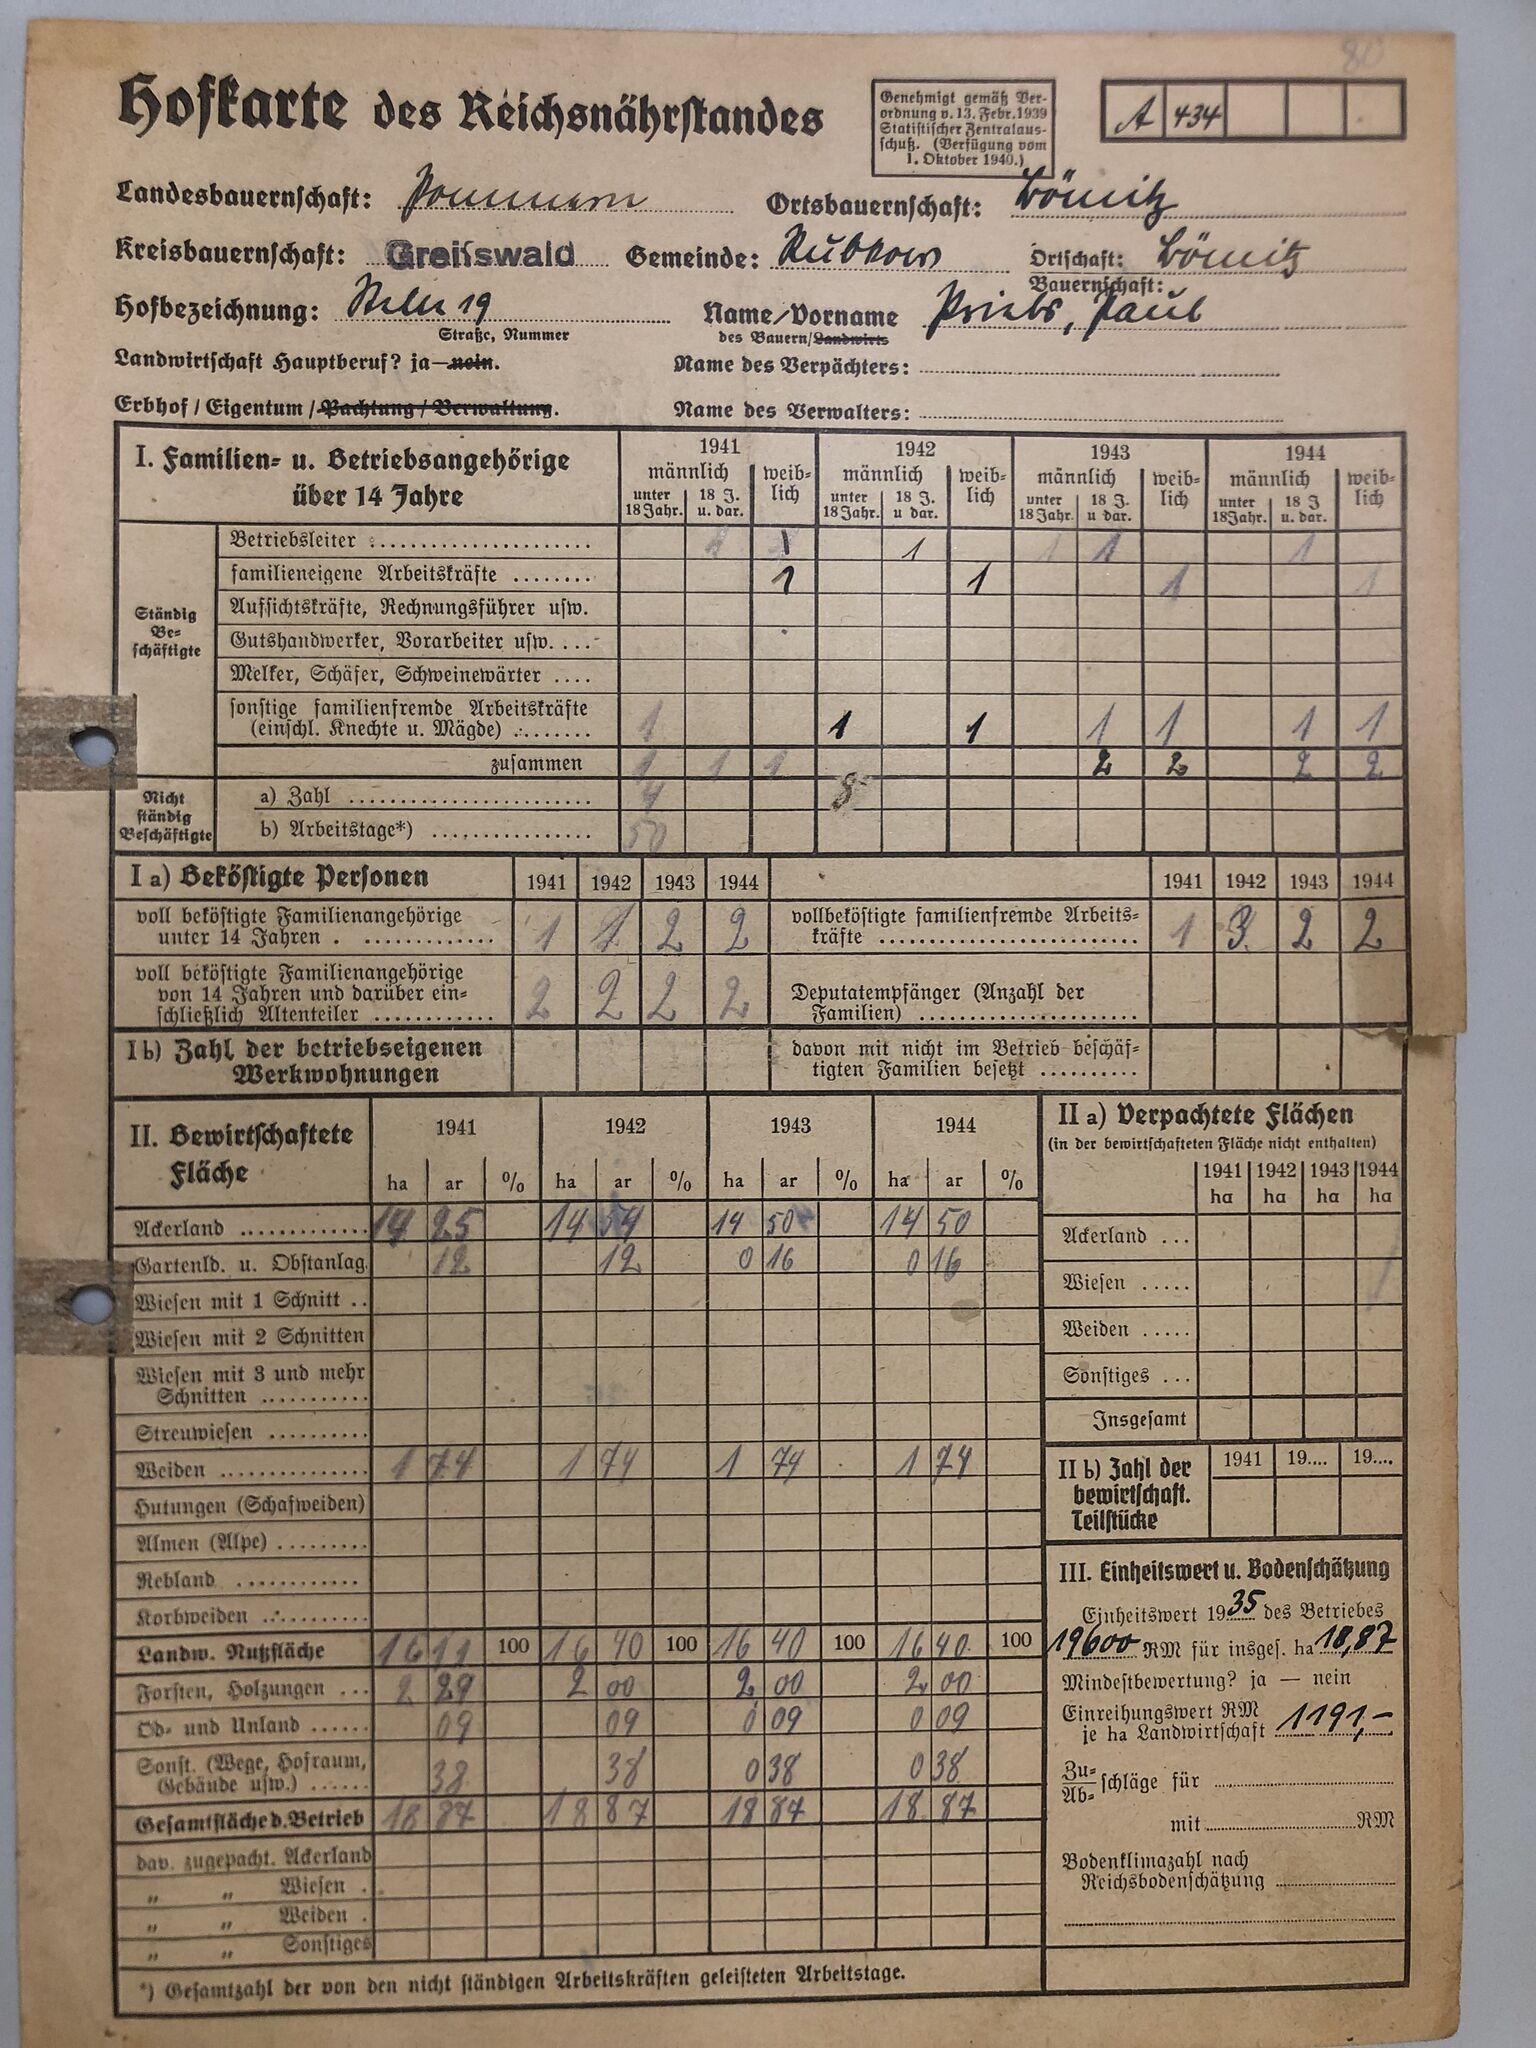 80
Hofkarte des Reichsnährstandes
Genehmigt gemäß Ver-
ordnung v. 13. Febr. 1939
Statistischer Zentralaus-
schuß. (Verfügung vom
1. Oktober 1940.)
A 434
Landesbauernschaft: Pommern Ortsbauernschaft: Bömitz
Kreisbauernschaft: Greifswald Gemeinde: Rubkow Ortschaft: Bömitz
Bauerschaft:
Hofbezeichnung: 19 Name/Vorname Priebs, Paul
Straße, Nummer des Bauern/Landwirts
Landwirtschaft Hauptberuf? ja—nein. Name des Verpächters:
Erbhof / Eigentum / Pachtung / Verwaltung. Name des Verwalters:
I. Familien- u. Betriebsangehörige
über 14 Jahre
1941 1942 1943 1944
männlich weib-lich männlich weib-lich männlich weib-lich männlich weib-lich
unter 18 Jahr. 18 J. u. dar. unter 18 Jahr. 18 J. u dar. unter 18 Jahr. 18 J. u dar. unter 18 Jahr. 18 J u. dar.
Ständig Be-schäftigte
Betriebsleiter 1 1 1 1 1 1
familieneigene Arbeitskräfte 1 1 1 1
Aufsichtskräfte, Rechnungsführer usw.
Gutshandwerker, Vorarbeiter usw.
Melker, Schäfer, Schweinewärter
sonstige familienfremde Arbeitskräfte
(einschl. Knechte u. Mägde) 1 1 1 1 1 1 1
zusammen 1 1 1 2 2 2 2
Nicht ständig Beschäftigte
a) Zahl 4 8
b) Arbeitstage*) 50
I a) Beköstigte Personen 1941 1942 1943 1944 1941 1942 1943 1944
voll beköstigte Familienangehörige
unter 14 Jahren 1 1 2 2
vollbeköstigte familienfremde Arbeits-
kräfte 1 3 2 2
voll beköstigte Familienangehörige
von 14 Jahren und darüber ein-
schließlich Altenteiler 2 2 2 2
Deputatempfänger (Anzahl der
Familien)
I b) Zahl der betriebseigenen
Werkwohnungen
davon mit nicht im Betrieb beschäf-
tigten Familien besetzt
II. Bewirtschaftete
Fläche
1941 1942 1943 1944
ha ar % ha ar % ha ar % ha ar %
Ackerland 14 25 14 54 14 50 14 50
Gartenld. u. Obstanlag. 12 12 0 16 0 16
Wiesen mit 1 Schnitt
Wiesen mit 2 Schnitten
Wiesen mit 3 und mehr
Schnitten
Streuwiesen
Weiden 1 74 1 74 1 74 1 74
Hutungen (Schafweiden)
Almen (Alpe)
Rebland
Korbweiden
Landw. Nutzfläche 16 11 100 16 40 100 16 40 100 16 40 100
Forsten, Holzungen 2 29 2 00 2 00 2 00
Öd- und Unland 09 09 0 09 0 09
Sonst. (Wege, Hofraum,
Gebäude usw.) 38 38 0 38 0 38
Gesamtfläche d. Betrieb 18 87 18 87 18 87 18 87
dav. zugepacht. Ackerland
„ „ Wiesen
„ „ Weiden
„ „ Sonstiges
*) Gesamtzahl der von den nicht ständigen Arbeitskräften geleisteten Arbeitstage.
II a) Verpachtete Flächen
(in der bewirtschafteten Fläche nicht enthalten)
1941 1942 1943 1944
ha ha ha ha
Ackerland
Wiesen
Weiden
Sonstiges
Insgesamt
II b) Zahl der
bewirtschaft.
Teilstücke
1941 19.... 19....
III. Einheitswert u. Bodenschätzung
Einheitswert 1935 des Betriebes
19600 RM für insges. ha 18,87
Mindestbewertung? ja — nein
Einreihungswert RM
je ha Landwirtschaft 1191,-
Zu-
Ab- schläge für
mit RM
Bodenklimazahl nach
Reichsbodenschätzung